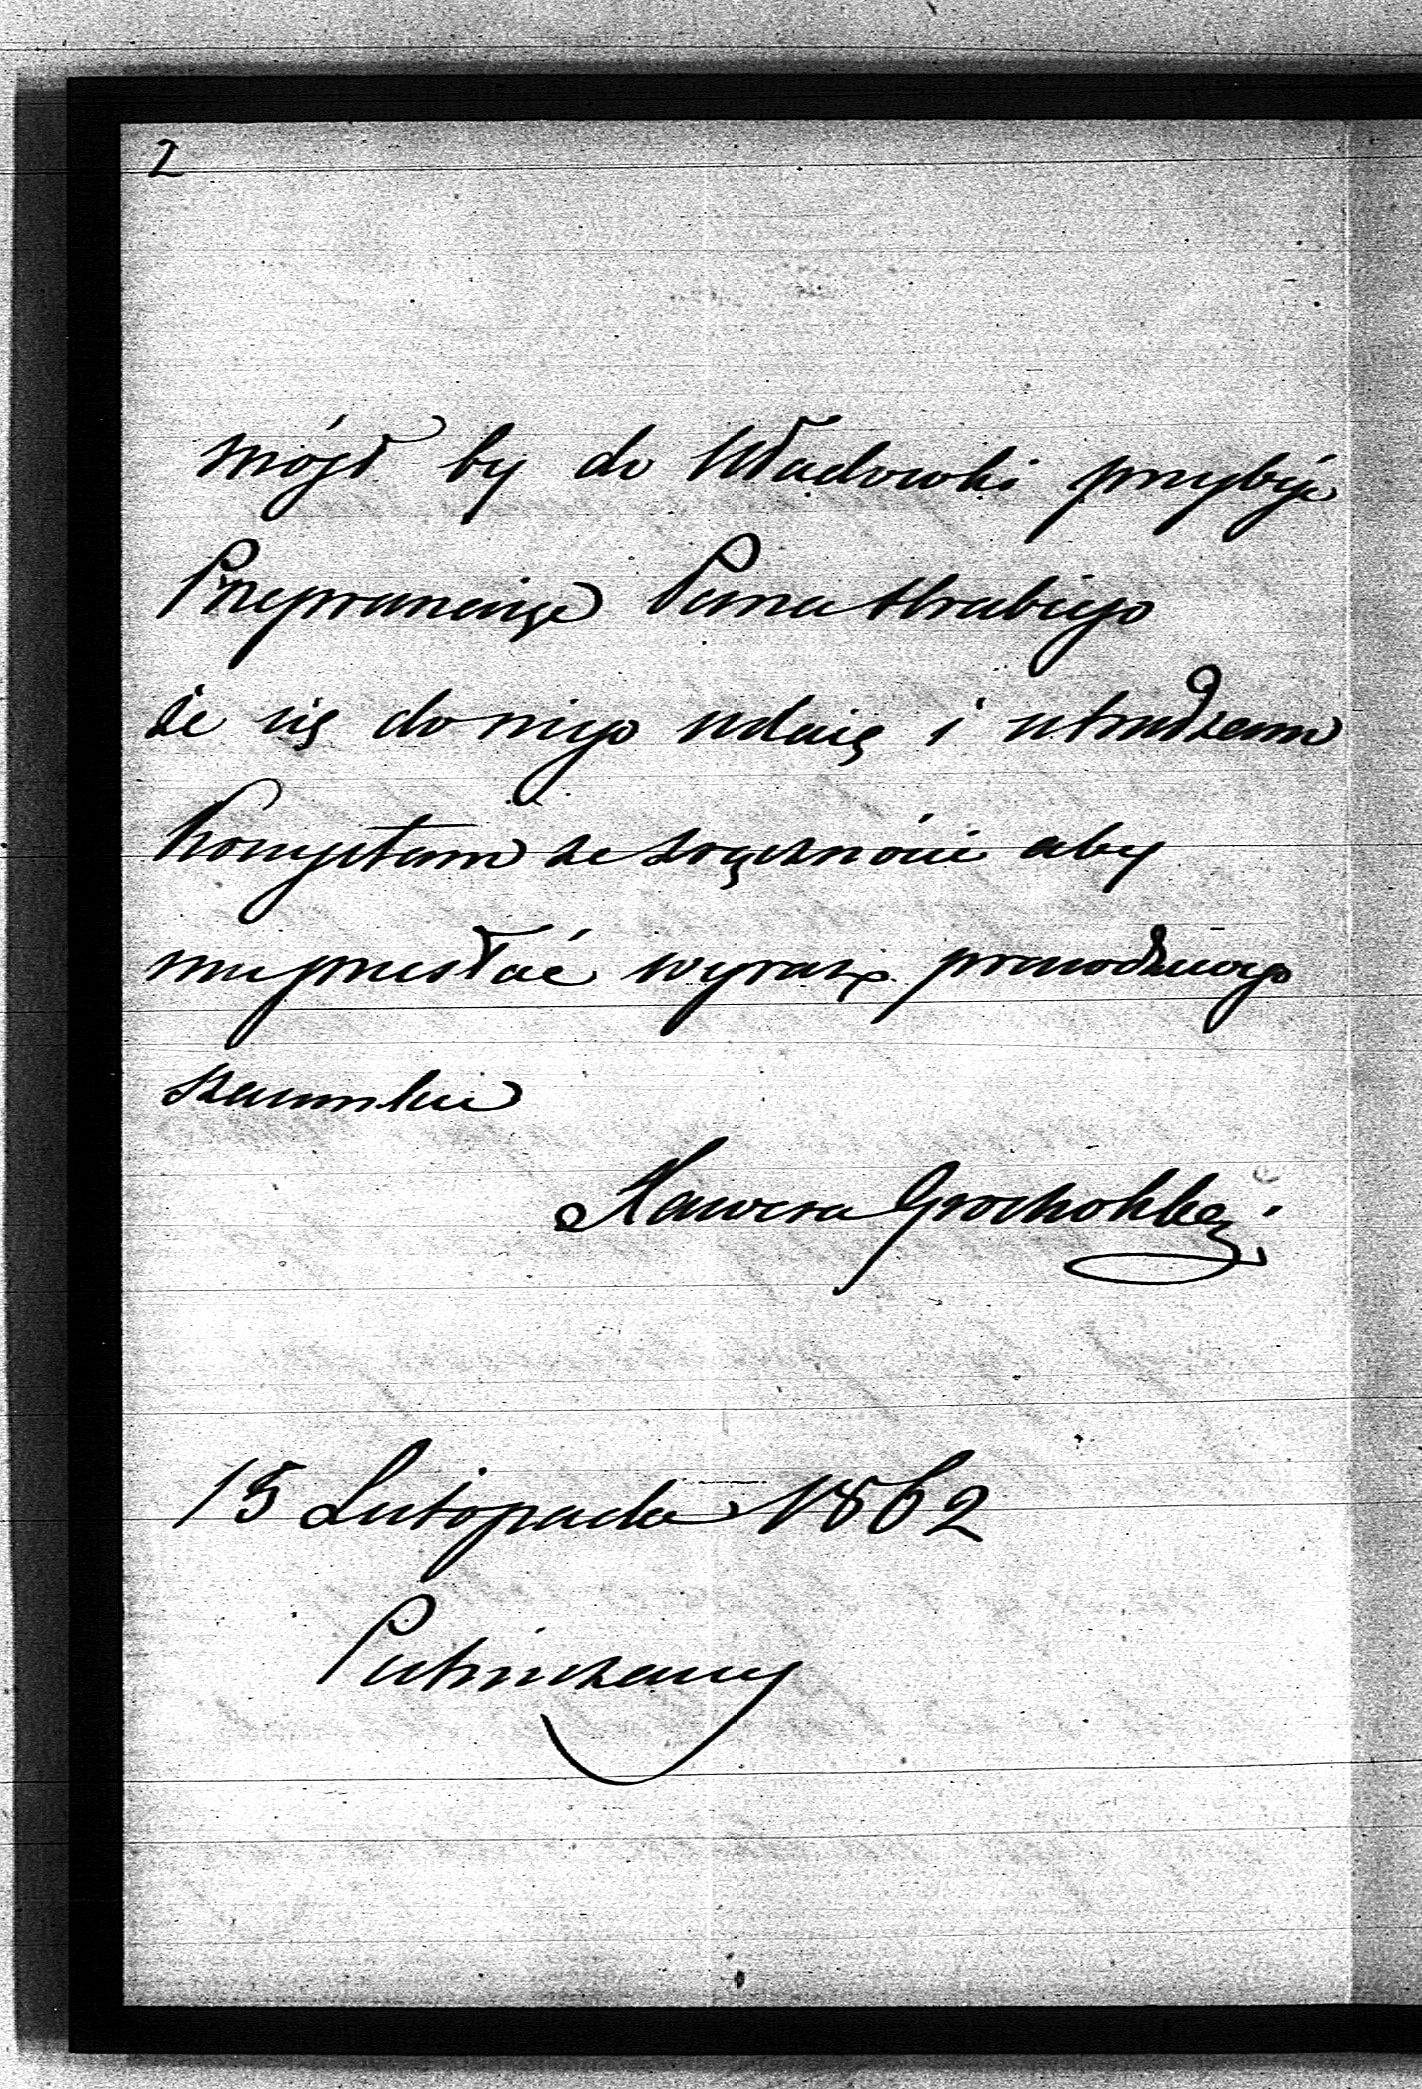 2
mógł by do Władowki przybyć
Przepraszając Pana Hrabiego
że się do niego udaię i utrudzam
korzystam ze zręczności aby
mu przesłać wyraz prawdziwego
szacunku
Xawera Grocholska
15 Listopada 1862
Pietniczany